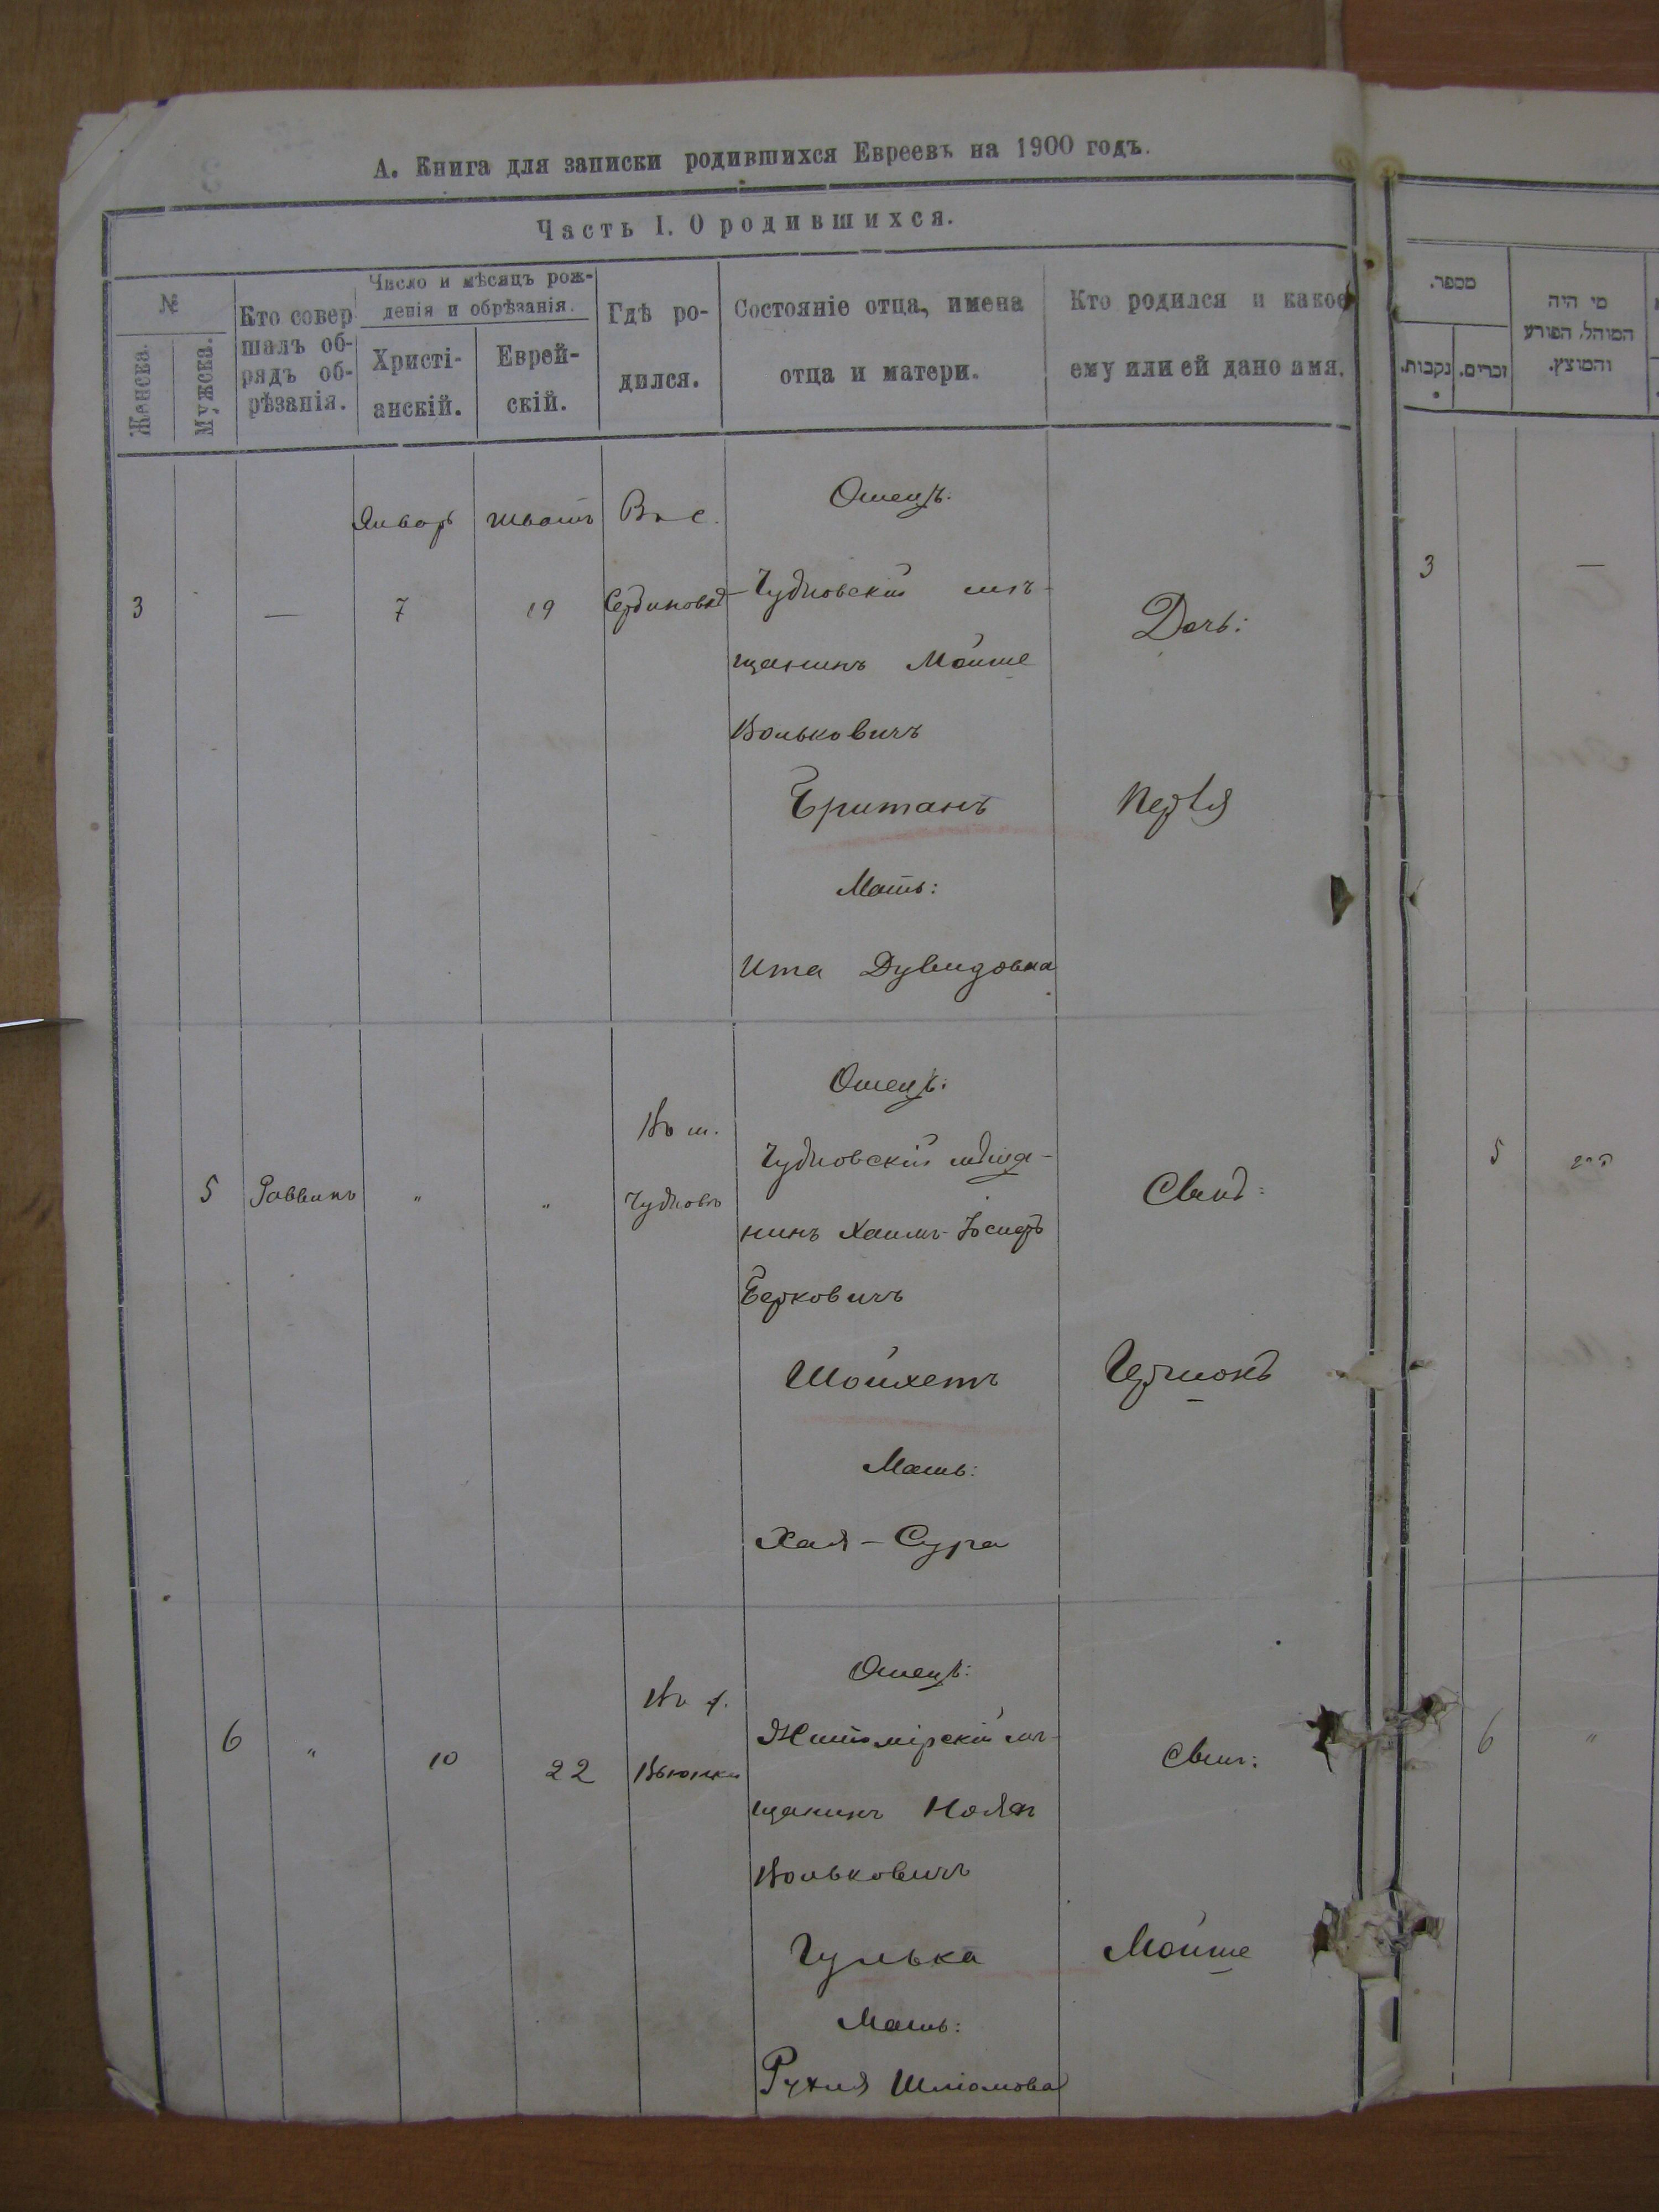 А. Книга для записки родившихся Евреевъ на 1900 годъ.
Часть I. О родившихся.
№
Женска.
Мужска.
Кто совер
шалъ об-
рядъ об-
рѣзанія.
Число и мѣсяцъ рож-
денія и обрѣзанія.
Христі-
анскій.
Еврей-
скій.
Гдѣ ро-
дился.
Состояніе отца, имена
отца и матери.
Кто родился и какое
ему или ей дано имя.
3
—
Январь
7
Шватъ
19
Въ с.
Отецъ:
Чудновскій мѣ-
щанинъ Мойше
Вольковичъ
Британъ
Мать:
Ита Дувидовна
Дочь:
Перля
5
Раввинъ
„
„
Въ м.
Чудновъ
Отецъ:
Чудновскій мѣща-
нинъ Хаимъ-Іосифъ
Берковичъ
Шойхетъ
Мать:
Хая-Сура
Сынъ:
Гершонъ
6
„
10
22
Въ
Отецъ:
Житомірскій мѣ-
щанинъ
Вольковичъ
Гулька
Мать:
Рухля Шліомова
Сынъ:
Мойше
מספר.
נקבות.
זכרים.
מי היה
המוהל, הפורע
והמוצץ.
3
—
5
6
„